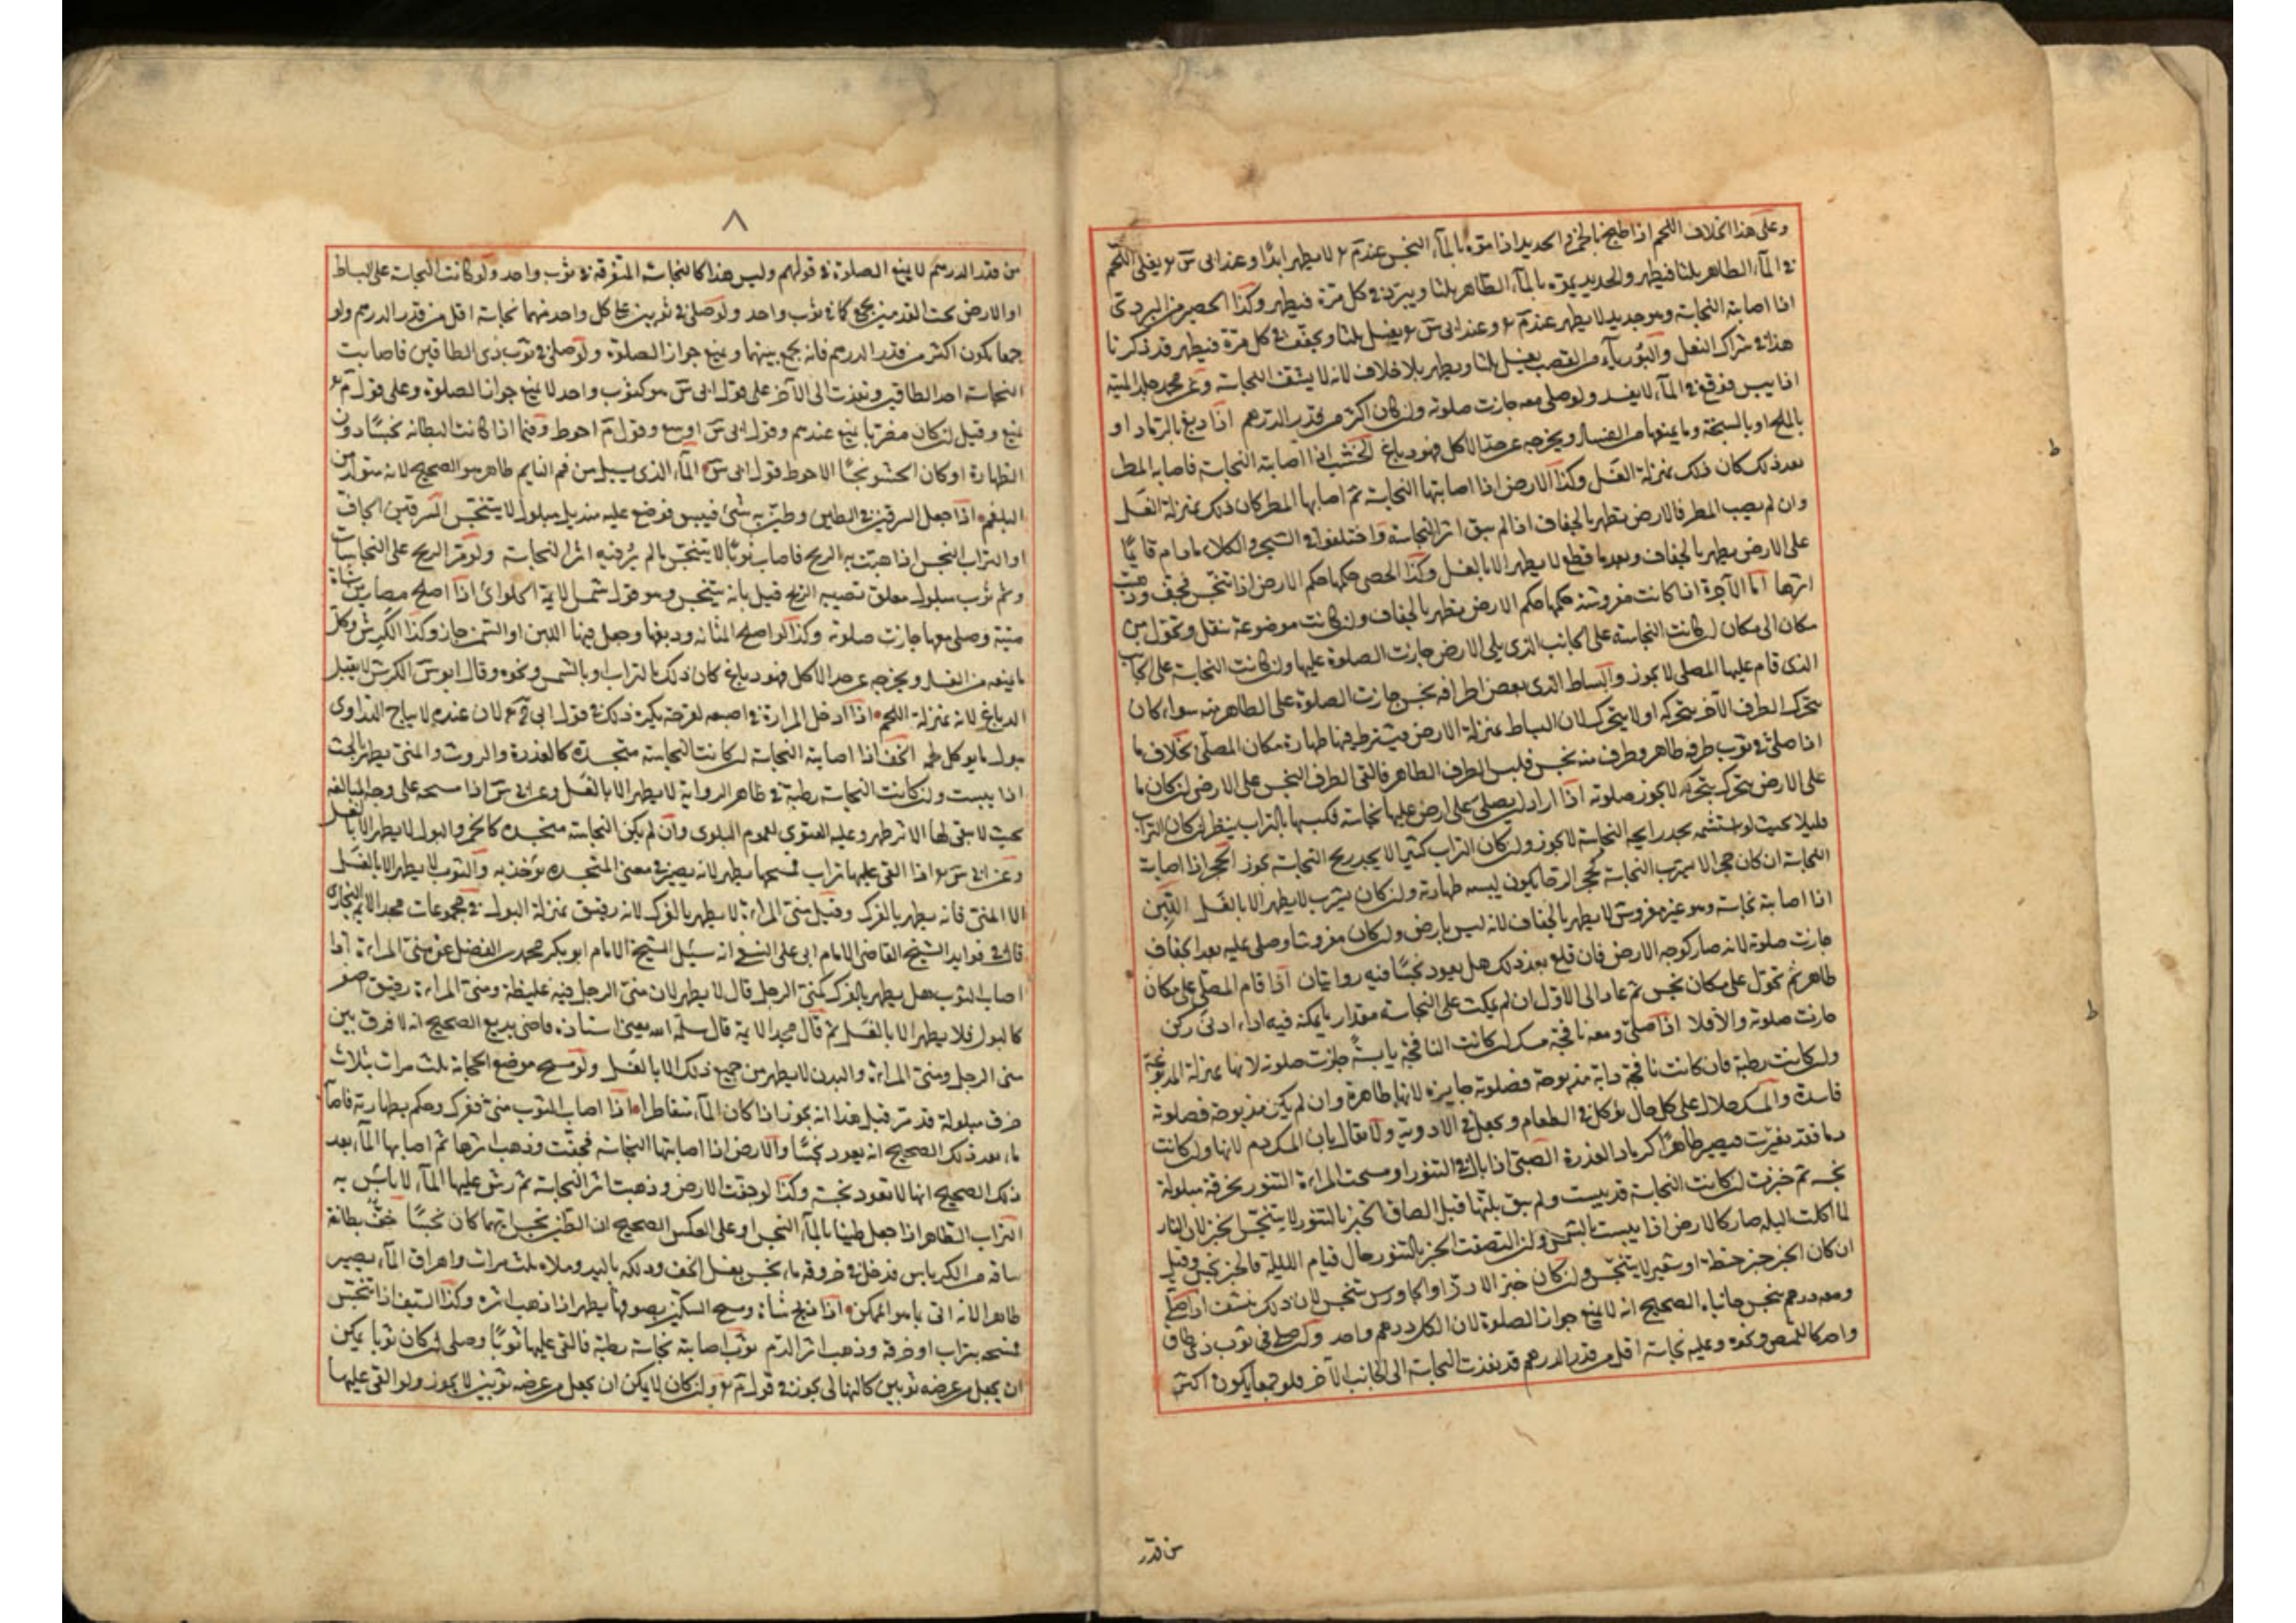 وعلى هذا الخلاف اللحم اذا طبخ بالخمر الحديد اذا موّه بالمآء النجس عند مٓ ع لا يطهر ابدًا وعند ابى سٓ ع يغلى اللحم
فى المآء الطاهر ثلثا فيطهر والحديد يموّه بالمآء الطاهر ثلثا ويبرد فى كل مرّة فيطهر وكذا الحصير من البردى
اذا اصابته النجاسة وهو جديد لا يطهر عند مٓ ع وعند ابى سٓ ع يغسل ثلثا ويجفّف فى كل مرّة فيطهر قد ذكرنا
هذا فى شراك النعل والبُورياء من القصب يغسل ثلثا ويطهر بلا خلاف لانه لا يتشف النجاسة وعن محمد جلد الميتة
اذا يبس فوقع فى المآء لا يفسد ولو صلى معه جازت صلوته وان كان اكثر من قدر الدرهم اذا دبغ بالرماد او
بالملح او بالسبخة وما يمنعها من الفساد ويخرجه عن حد الاكل فهو دباغ الخشب اذا اصابته النجاسة فاصابه المطر
بعد ذلك كان ذلك بمنزلة الغسل وكذا الارض اذا اصابتها النجاسة ثم اصابها المطر كان ذلك بمنزلة الغسل
وان لم يصب المطر فالارض يطهر بالجفاف اذا لم يبق اثر النجاسة واختلفوا فى الشجر والكلاء مادام قايمًا
على الارض يطهر بالجفاف وبعد ما قطع لا يطهر الا بالغسل وكذا الحصى حكمها حكم الارض اذا تنجّس فجفّ وذهبت
اثرها اما الآجرة اذا كانت مفروشة حكمها حكم الارض يطهر بالجفاف وان كانت موضوعة تنقل وتحوّل من
مكان الى مكان ان كانت النجاسة على الجانب الذى يلى الارض جازت الصلوة عليها وان كانت النجاسة على الجانب
الذى قام عليها المصلى لا يجوز والبساط الذى بعض اطرافه نجس جازت الصلوة على الطاهر منه سواء كان
يتحرك الطرف الآخر بتحركه او لا يتحرك لان البساط بمنزلة الارض فيشترط فيها طهارة مكان المصلّى بخلاف ما
اذا صلى فى ثوب طرفه طاهر وطرف منه نجس فلبس الطرف الطاهر فالقى الطرف النجس على الارض ان كان ما
على الارض يتحرك بتحركه لا يجوز صلوته اذا اراد ان يصلى على ارض عليها نجاسة فكبسها بالتراب ينظر ان كان التراب
قليلا بحيث لو استشمه يجد رايحه النجاسة لا يجوز وان كان التراب كثيرا لا يجد ريح النجاسة يجوز الحجر اذا اصابته
النجاسة ان كان حجرا لا يتشرب النجاسة كحجر الرحا يكون يبسه طهارة وان كان يتشرب لا يطهر الا بالغسل اللّبِن
اذا اصابته نجاسة وهو غير مفروش لا يطهر بالجفاف لانه ليس بارض وان كان مفروشا وصلى عليه بعد الجفاف
جازت صلوته لانه صار كوجه الارض فان قلع بعد ذلك هل يعود نجسًا فيه روايتان اذا قام المصلى على مكان
طاهر ثم تحوّل على مكان نجس ثم عاد الى الاول ان لم يمكث على النجاسة مقدار ما يمكنه فيه اداء ادنى ركن
جازت صلوته والا فلا اذا صلى ومعه نافجة مسك ان كانت النافجة يابسةً جازت صلوته لانها بمنزلة المدبوغة
وان كانت رطبة فان كانت نافجة دابة مذبوحة فصلوته جايزة لانها طاهرة وان لم يكن مذبوحة فصلوته
فاسدة والمسك حلال على كل حال يؤكل فى الطعام ويجعل فى الادوية ولا يقال بان المسك دم لانها وان كانت
دما فقد تغيّرت فيصير طاهرًا كرماد العذرة الصبىّ اذا بال فى التنور او مسحت المراءة التنور بخرقة مبلولة
نجسه ثم خبزت ان كانت النجاسة قد يبست ولم يبق بلّتها قبل الصاق الخبز بالتنور لا يتنجّس الخبز لان النار
لما اكلت البله صار كالارض اذا يبست بالشمس وان التصقت الخبز بالتنور حال قيام البلة فالخبز نجس وقيل
ان كان الخبز خبز حنطة او شعير لا يتنجّس وان كان خبز الارزّ او الجاورس يتنجس لان ذلك ينشف اذا صلى
ومعه درهم نجس جانباه الصحيح انه لا يمنع جواز الصلوة لان الكل درهم واحد وان صلى فى ثوب ذى طاق
واحد كالقميص ونحوه وعليه نجاسة اقل من قدر الدرهم قد نفذت النجاسة الى الجانب الآخر فلو جمعا يكون اكثر
من قدر
٨
من قدر الدرهم لا يمنع الصلوة فى قولهم وليس هذا كالنجاسة المتفرقة فى ثوب واحد ولو كانت النجاسة على البساط
او الارض تحت القدمين يجمع كما فى ثوب واحد ولو صلى فى ثوبين على كل واحد منهما نجاسة اقل من قدر الدرهم ولو
جمعا يكون اكثر من قدر الدرهم فانه يجمع بينهما ويمنع جواز الصلوة ولو صلى فى ثوب ذى الطاقين فاصابت
النجاسة احد الطاقين ونفذت الى الآخر على قول ابى سٓ هو كثوب واحد لا يمنع جواز الصلوة وعلى قول مٓ ع
يمنع وقيل ان كان مضرّبا يمنع عندهم وقول ابى سٓ اوسع وقول مٓ احوط وفيما اذا كانت البطانة نجسًا دون
الظهارة او كان الحشو نجسًا الاحوط قول ابى سٓ المآء الذى يسيل من فم النايم طاهر هو الصحيح لانه متولد من
البلغم اذا جعل السرقين فى الطين وطيّن به شئ فيبس فوضع عليه منديل مبلول لا يتنجّس السرقين الجافّ
او التراب النجس اذا هبّت به الريح فاصاب ثوبًا لا يتنجّس ما لم يُر فيه اثر النجاسة ولو مرّ الريح على النجاسات
وثم ثوب مبلول معلق تصيبه الريح قيل بانه يتنجس وهو قول شمس الايمة الحلوائى اذا اصلح مصارين شاة
ميتة وصلى معها جازت صلوته وكذا لو اصلح المثانه ودبغها وجعل فيها اللبن او السمن جاز وكذا الكرش وكل
ما يمنعه من الفساد ويخرجه عن حد الاكل فهو دباغ كان ذلك بالتراب او بالشمس ونحوه وقال ابو سٓ الكرش لا يقبل
الدباغ لانه بمنزلة اللحم اذا ادخل المرارة فى اصبعه لمرضه يكره ذلك فى قول ابى حٓ ع لان عنده لا يباح التداوى
ببول ما يوكل لحمه الخف اذا اصابته النجاسة ان كانت النجاسة متجسّدة كالعذرة والروث والمنى يطهر بالحتّ
اذا يبست وان كانت النجاسة رطبة فى ظاهر الرواية لا يطهر الا بالغسل وعن ابى سٓ اذا مسحه على وجه المبالغه
بحيث لا يبقى لها الاثر طهر وعليه الفتوى لعموم البلوى وان لم يكن النجاسة متجسده كالخمر والبول لا يطهر الا بالغسل
وعن ابى سٓ ع اذا القى عليها تراب فمسحها يطهر لانه يصير فى معنى المتجسدة يؤخذ به والثوب لا يطهر الا بالغسل
الا المنى فانه يطهر بالفرك وقيل منى المراءة لا يطهر بالفرك لانه رقيق بمنزلة البول فى مجموعات مجد الايمه البخارى
قال فى فوايد الشيخ القاضى الامام ابى على النسفى انه سئل الشيخ الامام ابو بكر محمد بن الفضل عن منى المراءة اذا
اصاب الثوب هل يطهر بالفرك كمنى الرجل قال لا يطهر لان منى الرجل فيه غليظة ومنى المراءة رقيق اصفر
كالبول فلا يطهر الا بالغسل ثم قال مجد الايمة قال سلّمه الله يعنى استاذه قاضى بديع الصحيح انه لا فرق بين
منى الرجل ومنى المراءة والبدن لا يطهر من جميع ذلك الا بالغسل ولو مسح موضع الحجامة ثلث مرات بثلاث
خرق مبلولة قد مرّ قبل هذا انه يجوز اذا كان المآء متقاطرا اذا اصاب الثوب منى ففرك وحكم بطهارته فاصابه
ماء بعد ذلك الصحيح انه يعود نجسًا والارض اذا اصابتها النجاسه فجفّت وذهب اثرها ثم اصابها المآء بعد
ذلك الصحيح انها لا تعود نجسة وكذا لو جفّت الارض وذهبت اثر النجاسة ثم رشّ عليها المآء لا باس به
التراب الطاهر اذا جعل طينا بالمآء النجس او على العكس الصحيح ان الطين نجس ايهما كان نجسًا خفّ بطانة
ساقه من الكرباس فدخل فى خروقه ماء نجس يغسل الخف ودلكه باليد وملاه ثلث مرات واهراق المآء يصير
طاهرا لانه اتى بما هو الممكن اذا ذبح شاة ومسح السكين بصوفها يطهر اذا ذهب اثره وكذا السيف اذا تنجّس
فمسحه بتراب او خرقة وذهب اثر الدم ثوب اصابته نجاسة رطبة فالقى عليها ثوبًا وصلى ان كان ثوبا يمكن
ان يجعل من عرضه ثوبين كالنهالى يجوز فى قول مٓ ع وان كان لا يمكن ان يجعل من عرضه ثوبين لا يجوز ولو القى عليها